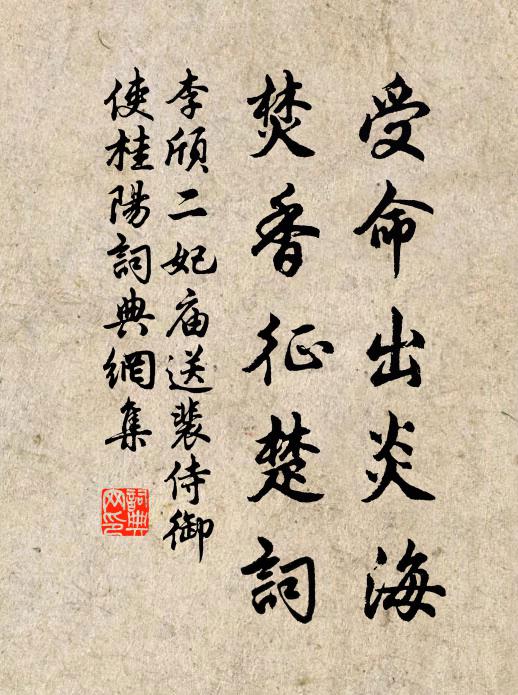 受命出炎海
焚香征楚詞
李頎二妃庙送裴侍御
使桂陽詞典網集
詞典
网印